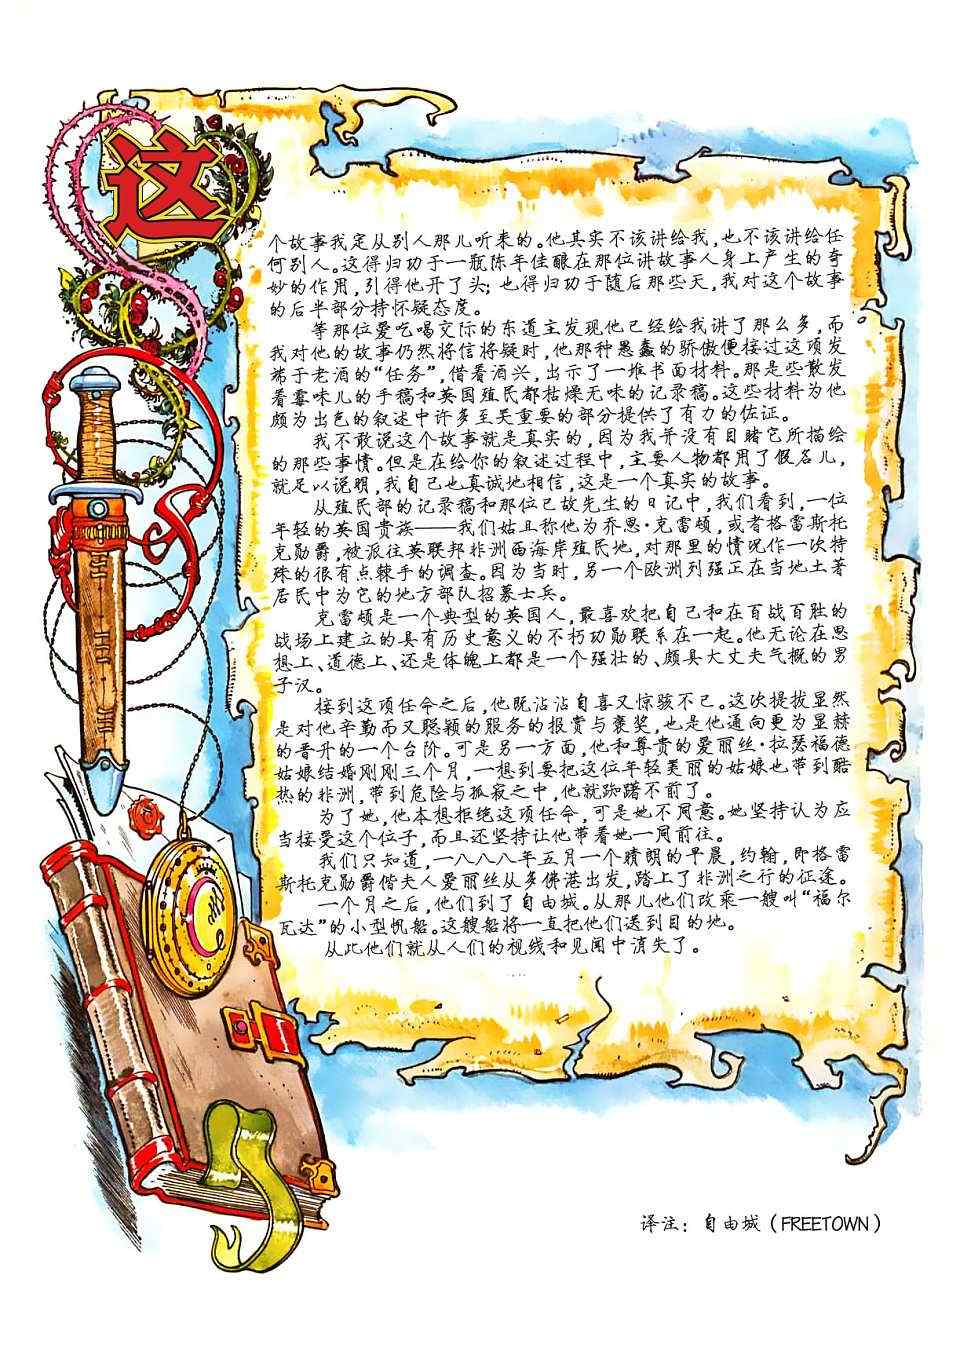 这
个故事我是从别人那儿听来的。他其实不该讲给我,也不该讲给任
何别人。这得归功于一瓶陈年佳酿在那位讲故事人身上产生的奇
妙的作用,引得他开了头;也得归功于随后那些天,我对这个故事
的后半部分持怀疑态度。
等那位爱吃喝交际的东道主发现他已经给我讲了那么多,而
我对他的故事仍然将信将疑时,他那种愚蠢的骄傲便接过这项发
端于老酒的“任务”,借着酒兴,出示了一堆书面材料。那是些散发
着霉味儿的手稿和英国殖民都枯燥无味的记录稿。这些材料为他
颇为出色的叙述中许多至关重要的部分提供了有力的佐证。
我不敢说这个故事就是真实的,因为我并没有目睹它所描绘
的那些事情。但是在给你的叙述过程中,主要人物都用了假名儿,
就足以说明,我自己也真诚地相信,这是一个真实的故事。
从殖民部的记录稿和那位已故先生的日记中,我们看到,一位
年轻的英国贵族——我们姑且称他为乔恩·克雷顿,或者格雷斯托
克勋爵,被派往英联邦非洲西海岸殖民地,对那里的情况作一次特
殊的很有点棘手的调查。因为当时,另一个欧洲列强正在当地土著
居民中为它的地方部队招募士兵。
克雷顿是一个典型的英国人,最喜欢把自己和在百战百胜的
战场上建立的具有历史意义的不朽功勋联系在一起。他无论在思
想上、道德上、还是体魄上都是一个强壮的、颇具大丈夫气概的男
子汉。
接到这项任命之后,他既沾沾自喜又惊骇不已。这次提拔显然
是对他辛勤而又聪颖的服务的报赏与褒奖,也是他通向更为显赫
的晋升的一个台阶。可是另一方面,他和尊贵的爱丽丝·拉瑟福德
姑娘结婚刚刚三个月,一想到要把这位年轻美丽的姑娘也带到酷
热的非洲,带到危险与孤寂之中,他就踟躇不前了。
为了她,他本想拒绝这项任命,可是她不同意。她坚持认为应
当接受这个位子,而且还坚持让他带着她一同前往。
我们只知道,一八八八年五月一个晴朗的早晨,约翰,即格雷
斯托克勋爵偕夫人爱丽丝从多佛港出发,踏上了非洲之行的征途。
一个月之后,他们到了自由城。从那儿他们改乘一艘叫“福尔
瓦达”的小型帆船。这艘船将一直把他们送到目的地。
从此他们就从人们的视线和见闻中消失了。
译注:自由城(FREETOWN)